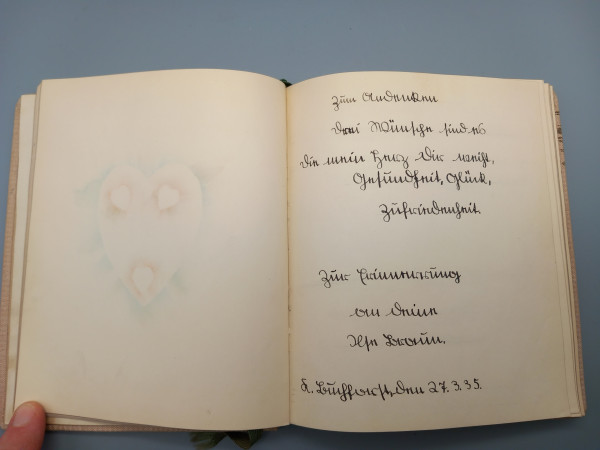 Zum Andenken
Drei Wünsche sind es
die mein Herz Dir weiht,
Gesundheit, Glück,
Zufriedenheit
Zur Erinnerung
an deine
Ilse Braun.
K. Buchforst, den 27.3.35.